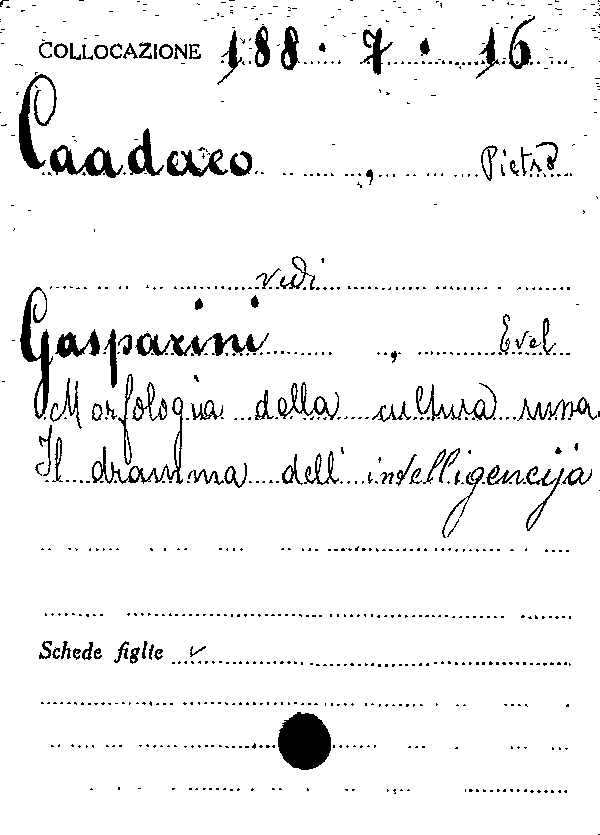 COLLOCAZIONE 188. 7. 16
Caadaeo, Pietro
vedi
Gasparini, Evel
Morfologia della cultura russa.
Il dramma dell'intelligencija
Schede figlie v